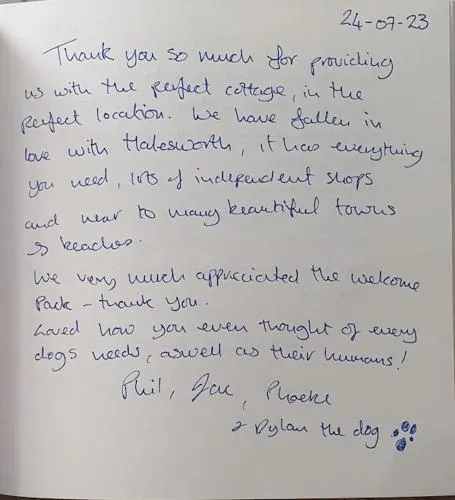 24-07-23
Thank you so much for providing
us with the perfect cottage, in the
perfect location. We have fallen in
love with Halesworth, it has everything
you need, lots of independent shops
and near to many beautiful towns
& beaches.
We very much appreciated the welcome
Pack - thank you.
Loved how you even thought of every
dogs needs, aswell as their humans!
Phil, Jae, Phoebe
& Dylan the dog